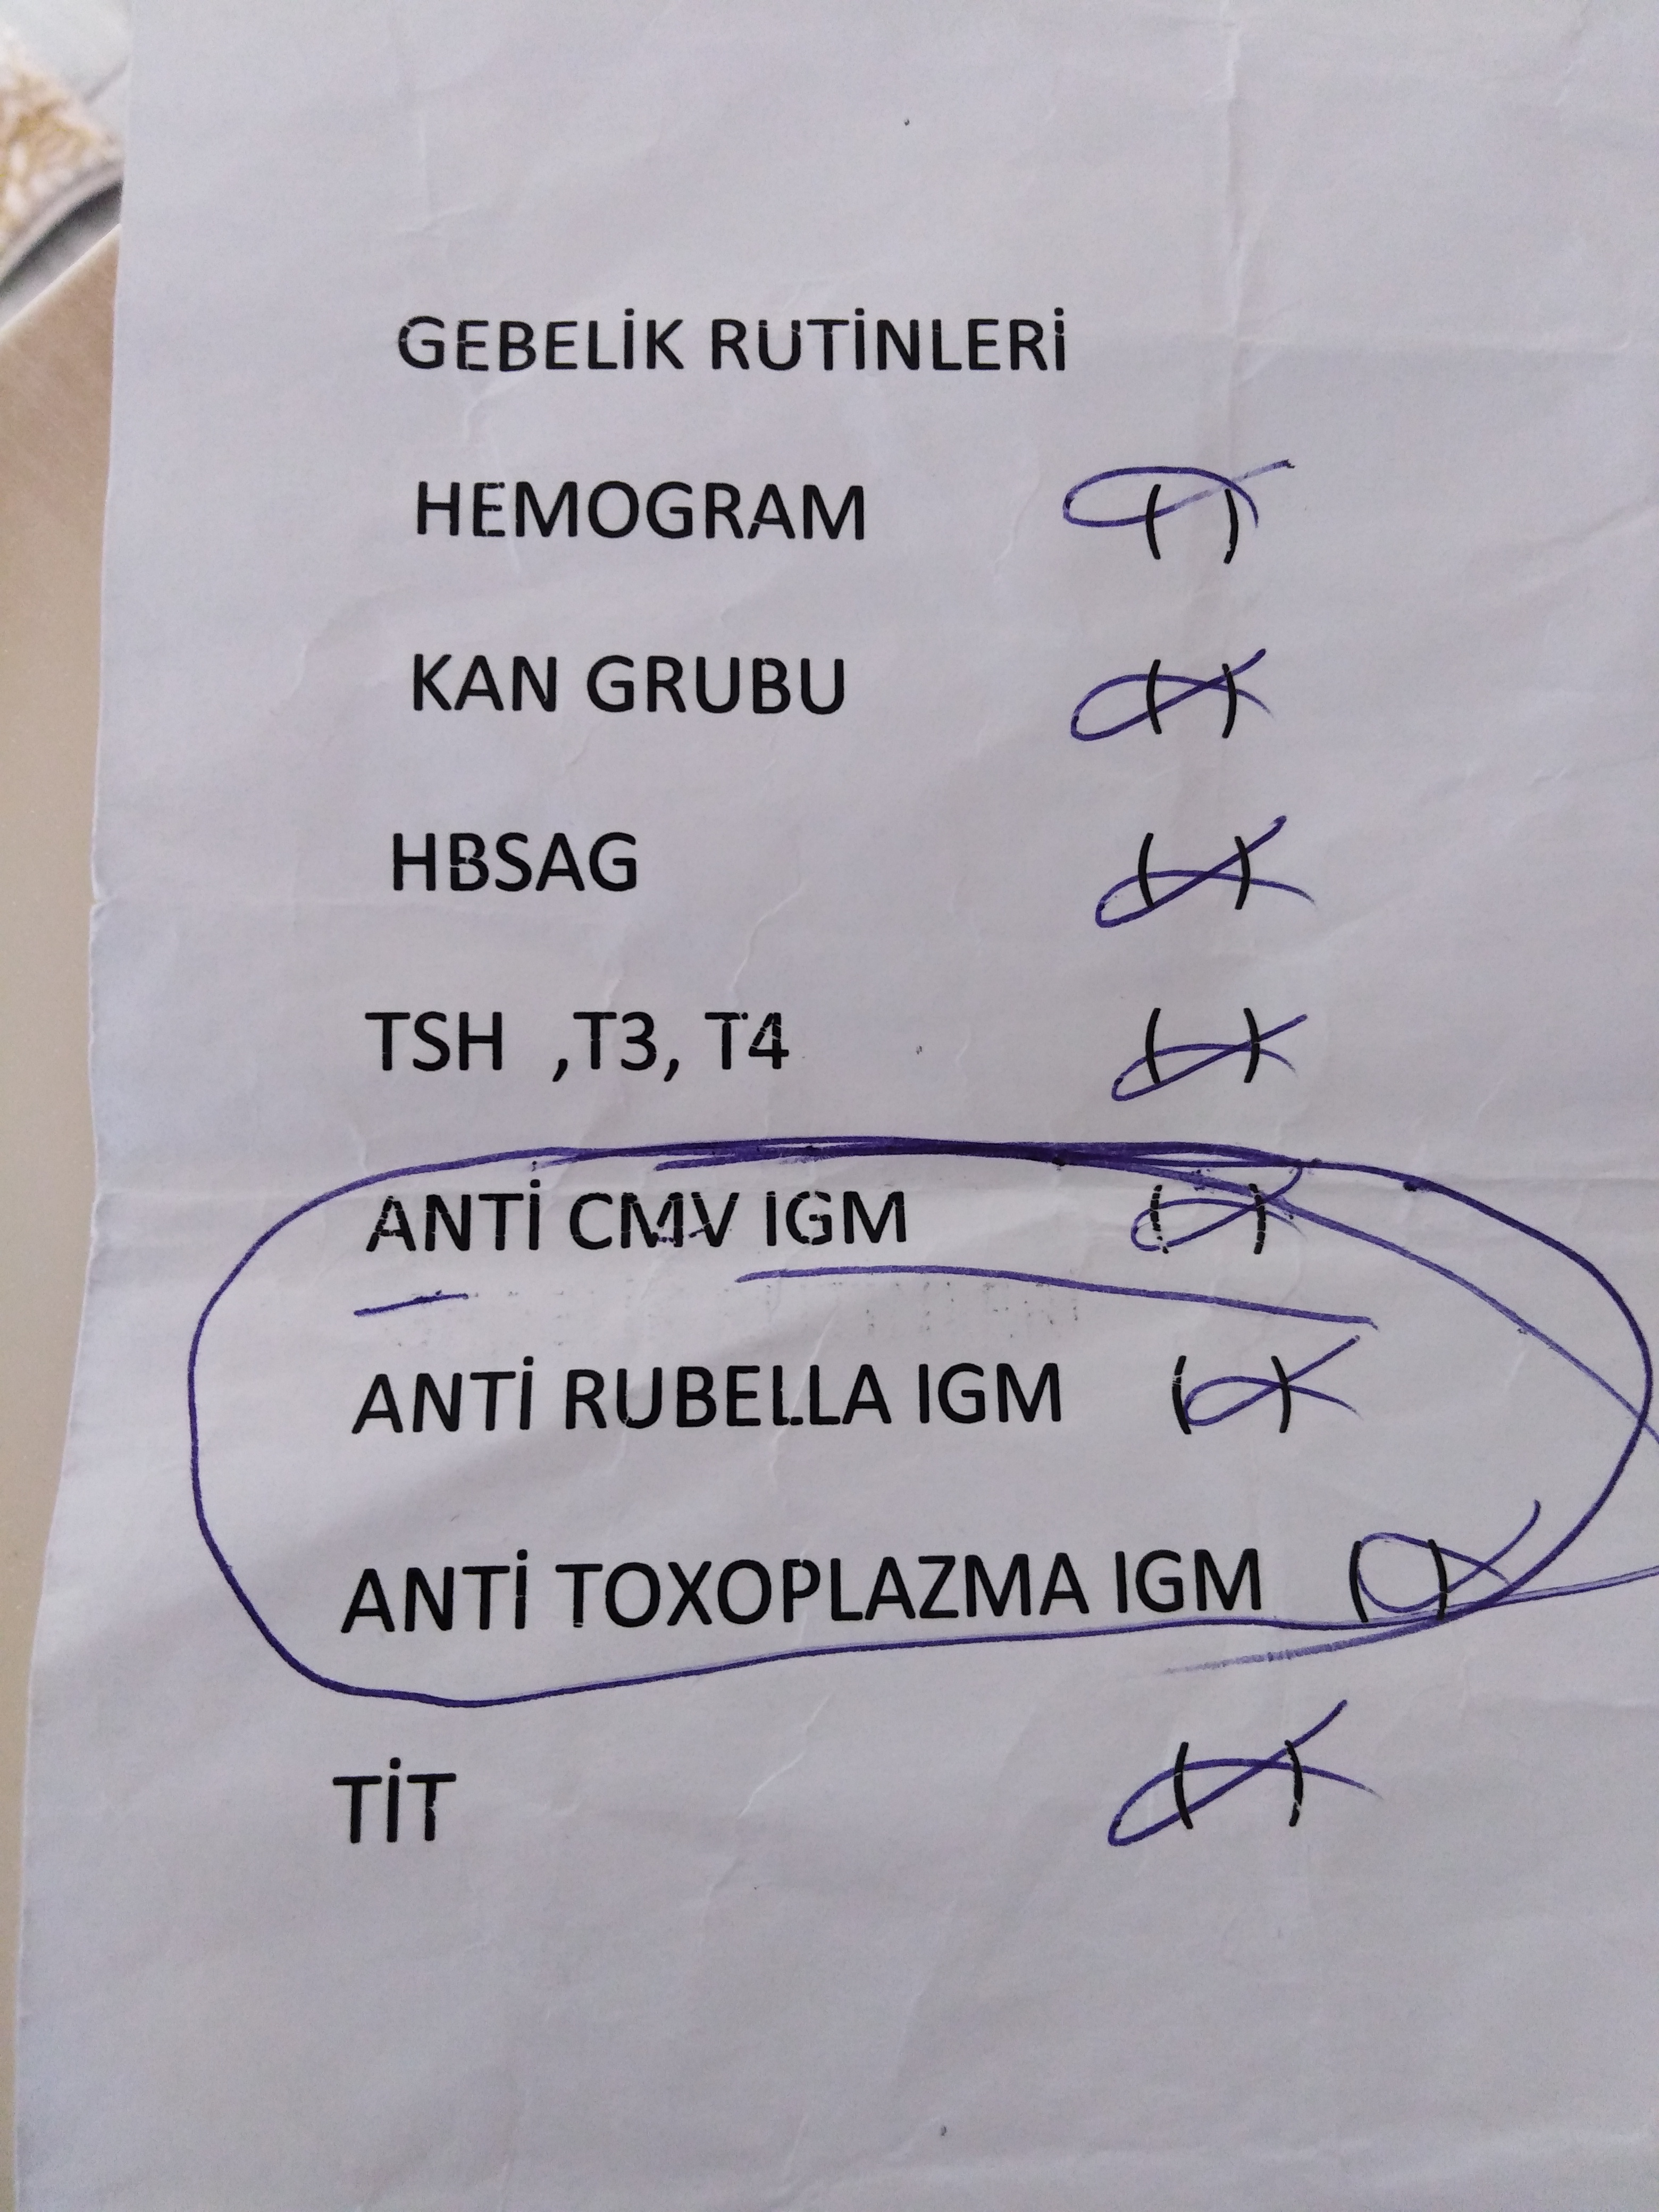 GEBELİK RUTİNLERİ
HEMOGRAM ( )
KAN GRUBU ( )
HBSAG ( )
TSH ,T3, T4 ( )
ANTİ CMV IGM ( )
ANTİ RUBELLA IGM ( )
ANTİ TOXOPLAZMA IGM ( )
TİT ( )